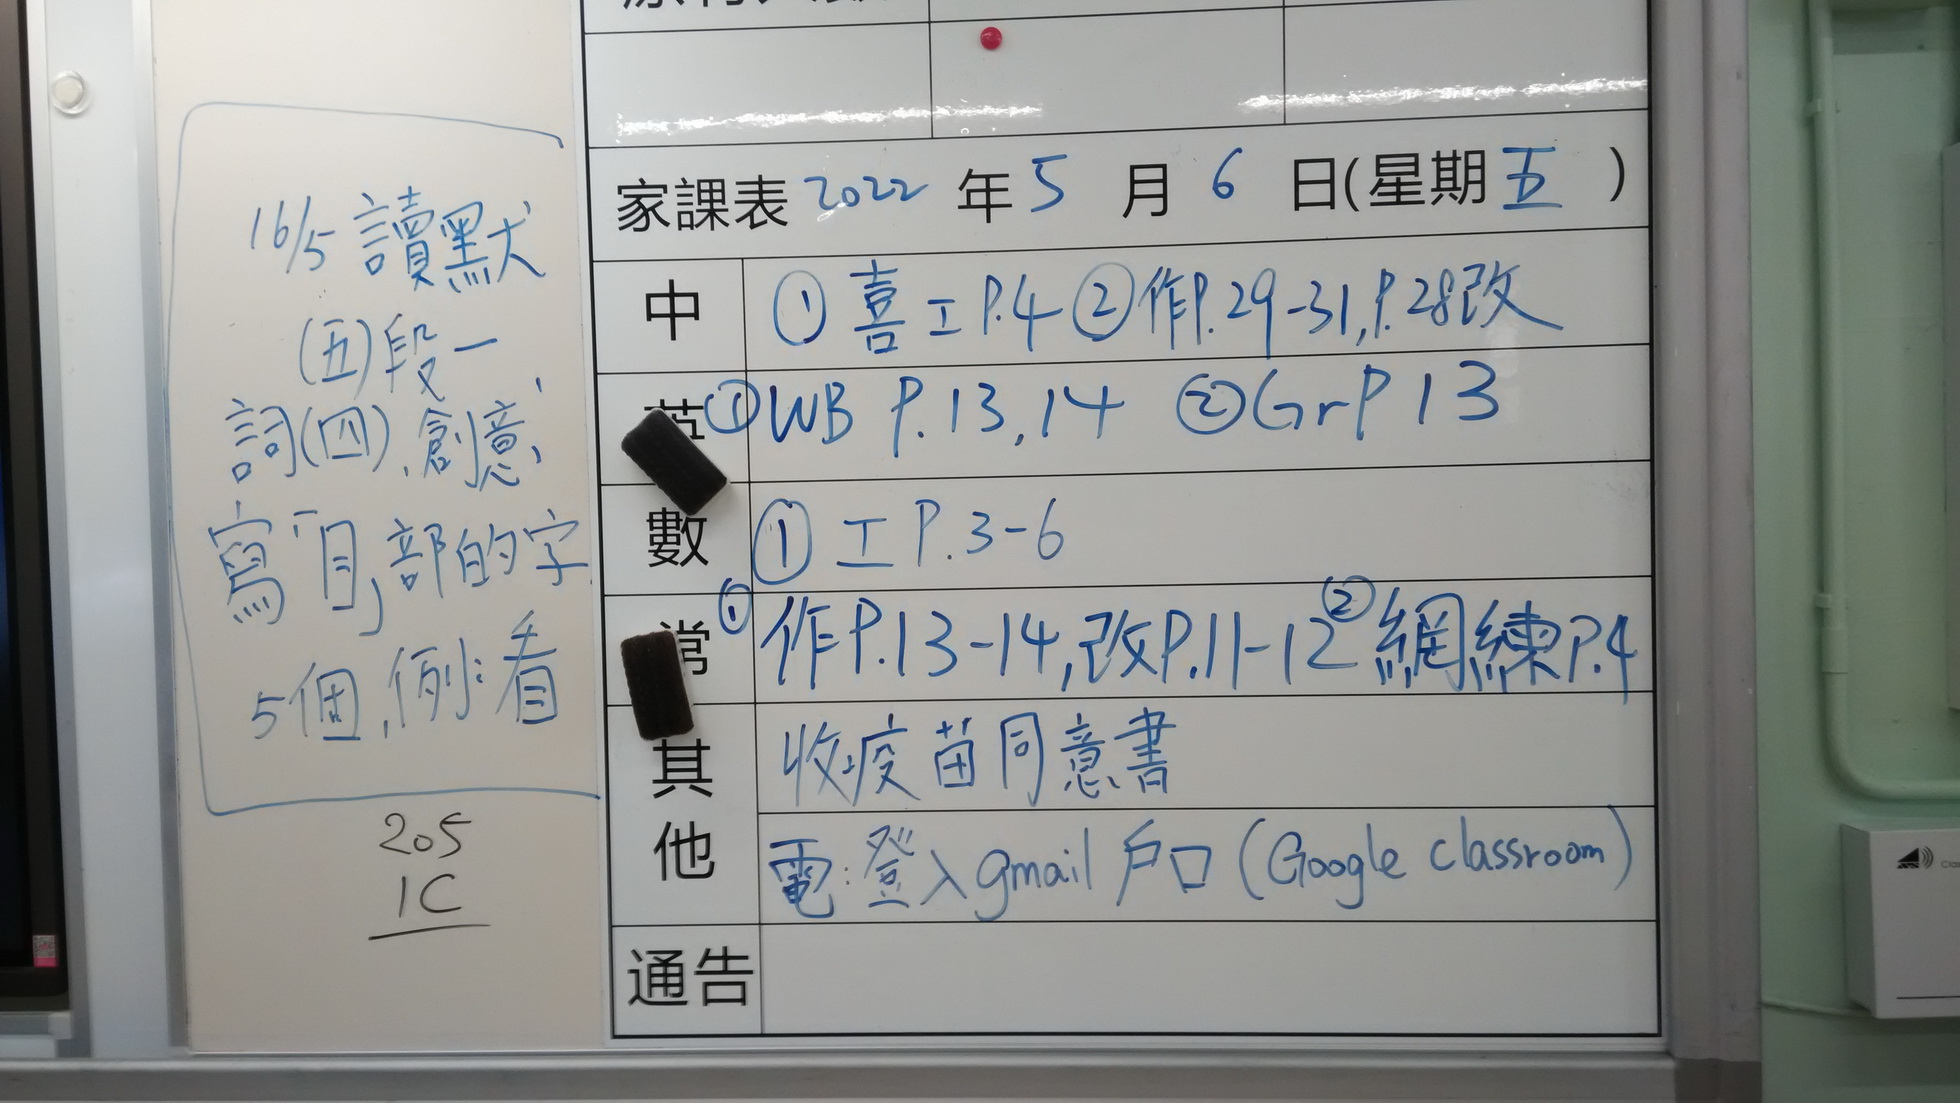 16/5 讀默
(五)段一
詞(四),創意,
寫「目」部的字
5個,例:看
205
1C
家課表 2022 年 5 月 6 日(星期五)
中 ①喜工P.4 ②作P.29-31,P.28改
英 ①WB P.13,14 ②GrP 13
數 ①工P.3-6
常 ①作P.13-14,改P.11-12 ②網練P.4
其他 收疫苗同意書
電:登入gmail戶口(Google classroom)
通告